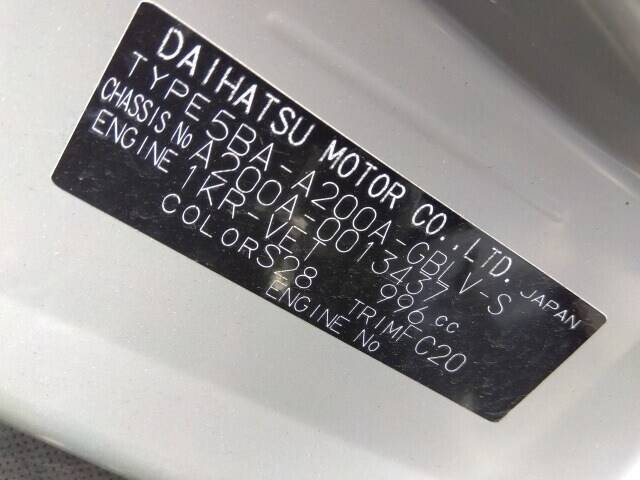 DAIHATSU MOTOR CO.,LTD. JAPAN
TYPE 5BA-A200A-GBLV-S
CHASSIS No A200A-0013437
ENGINE 1KR-VET 996 cc
COLOR S28 TRIM FC20
ENGINE No